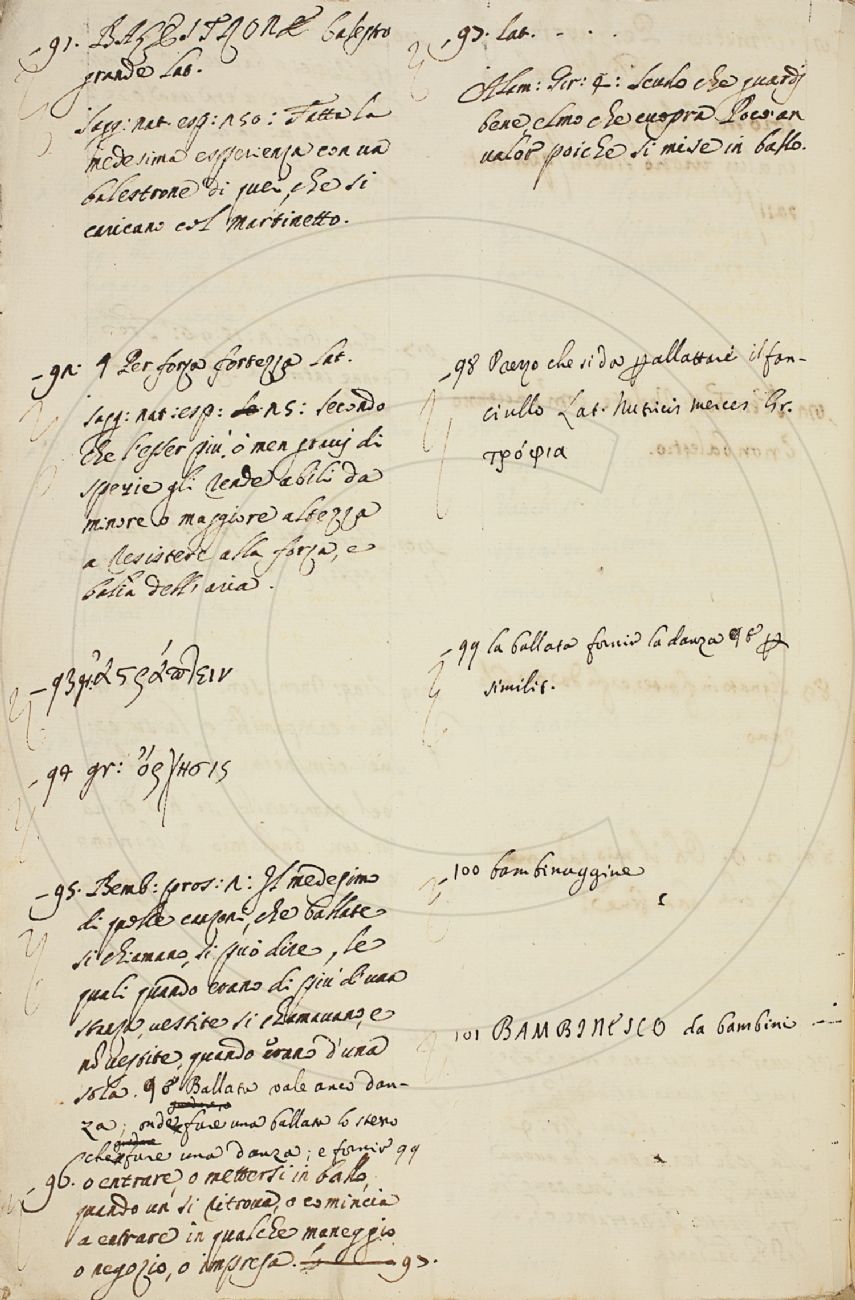 91. BALESTRONE balestro
grande Lat.
Sagg: nat. esp: 250: Fatta la
medesima esperienza con un
balestrone di quei, che si
caricano col martinetto.
92: ¶ Per forza fortezza Lat.
Sagg: nat: esp: 25: Secondo
che l'esser più, o men gravi di
spezie gli rende abili da
minore o maggiore altezza
a resistere alla forza, e
balìa dell'aria.
93 gr: ἀστράπλειν
94 gr: ὄρχησις
95. Bemb: pros: 2: Il medesimo
di quelle canzoni, che ballate
si chiamano, si può dire, le
quali quando erano di più d'una
stanza, vestite si chiamavano, e
nō vestite, quando erano d'una
sola. 98 Ballata vale anco dan-
za; onde fare una ballata lo stesso
che fare una danza; e fornir 99
96. o entrare, o mettersi in ballo,
quando un si ritrova, o comincia
a entrare in qualche maneggio
o negozio, o impresa. 97.
97. lat. - . .
Alam: Gir: 4: Scudo che guardi
bene, elmo che cuopra Poco an
valor poiche si mise in ballo.
98 Prezzo che si da ꝑ allattare il fan-
ciullo Lat. Nutricis merces Gr.
τρόφια
99 la ballata fornir la danza 98 ꝑ
similit.
100 bambinaggine
101 BAMBINESCO da bambini